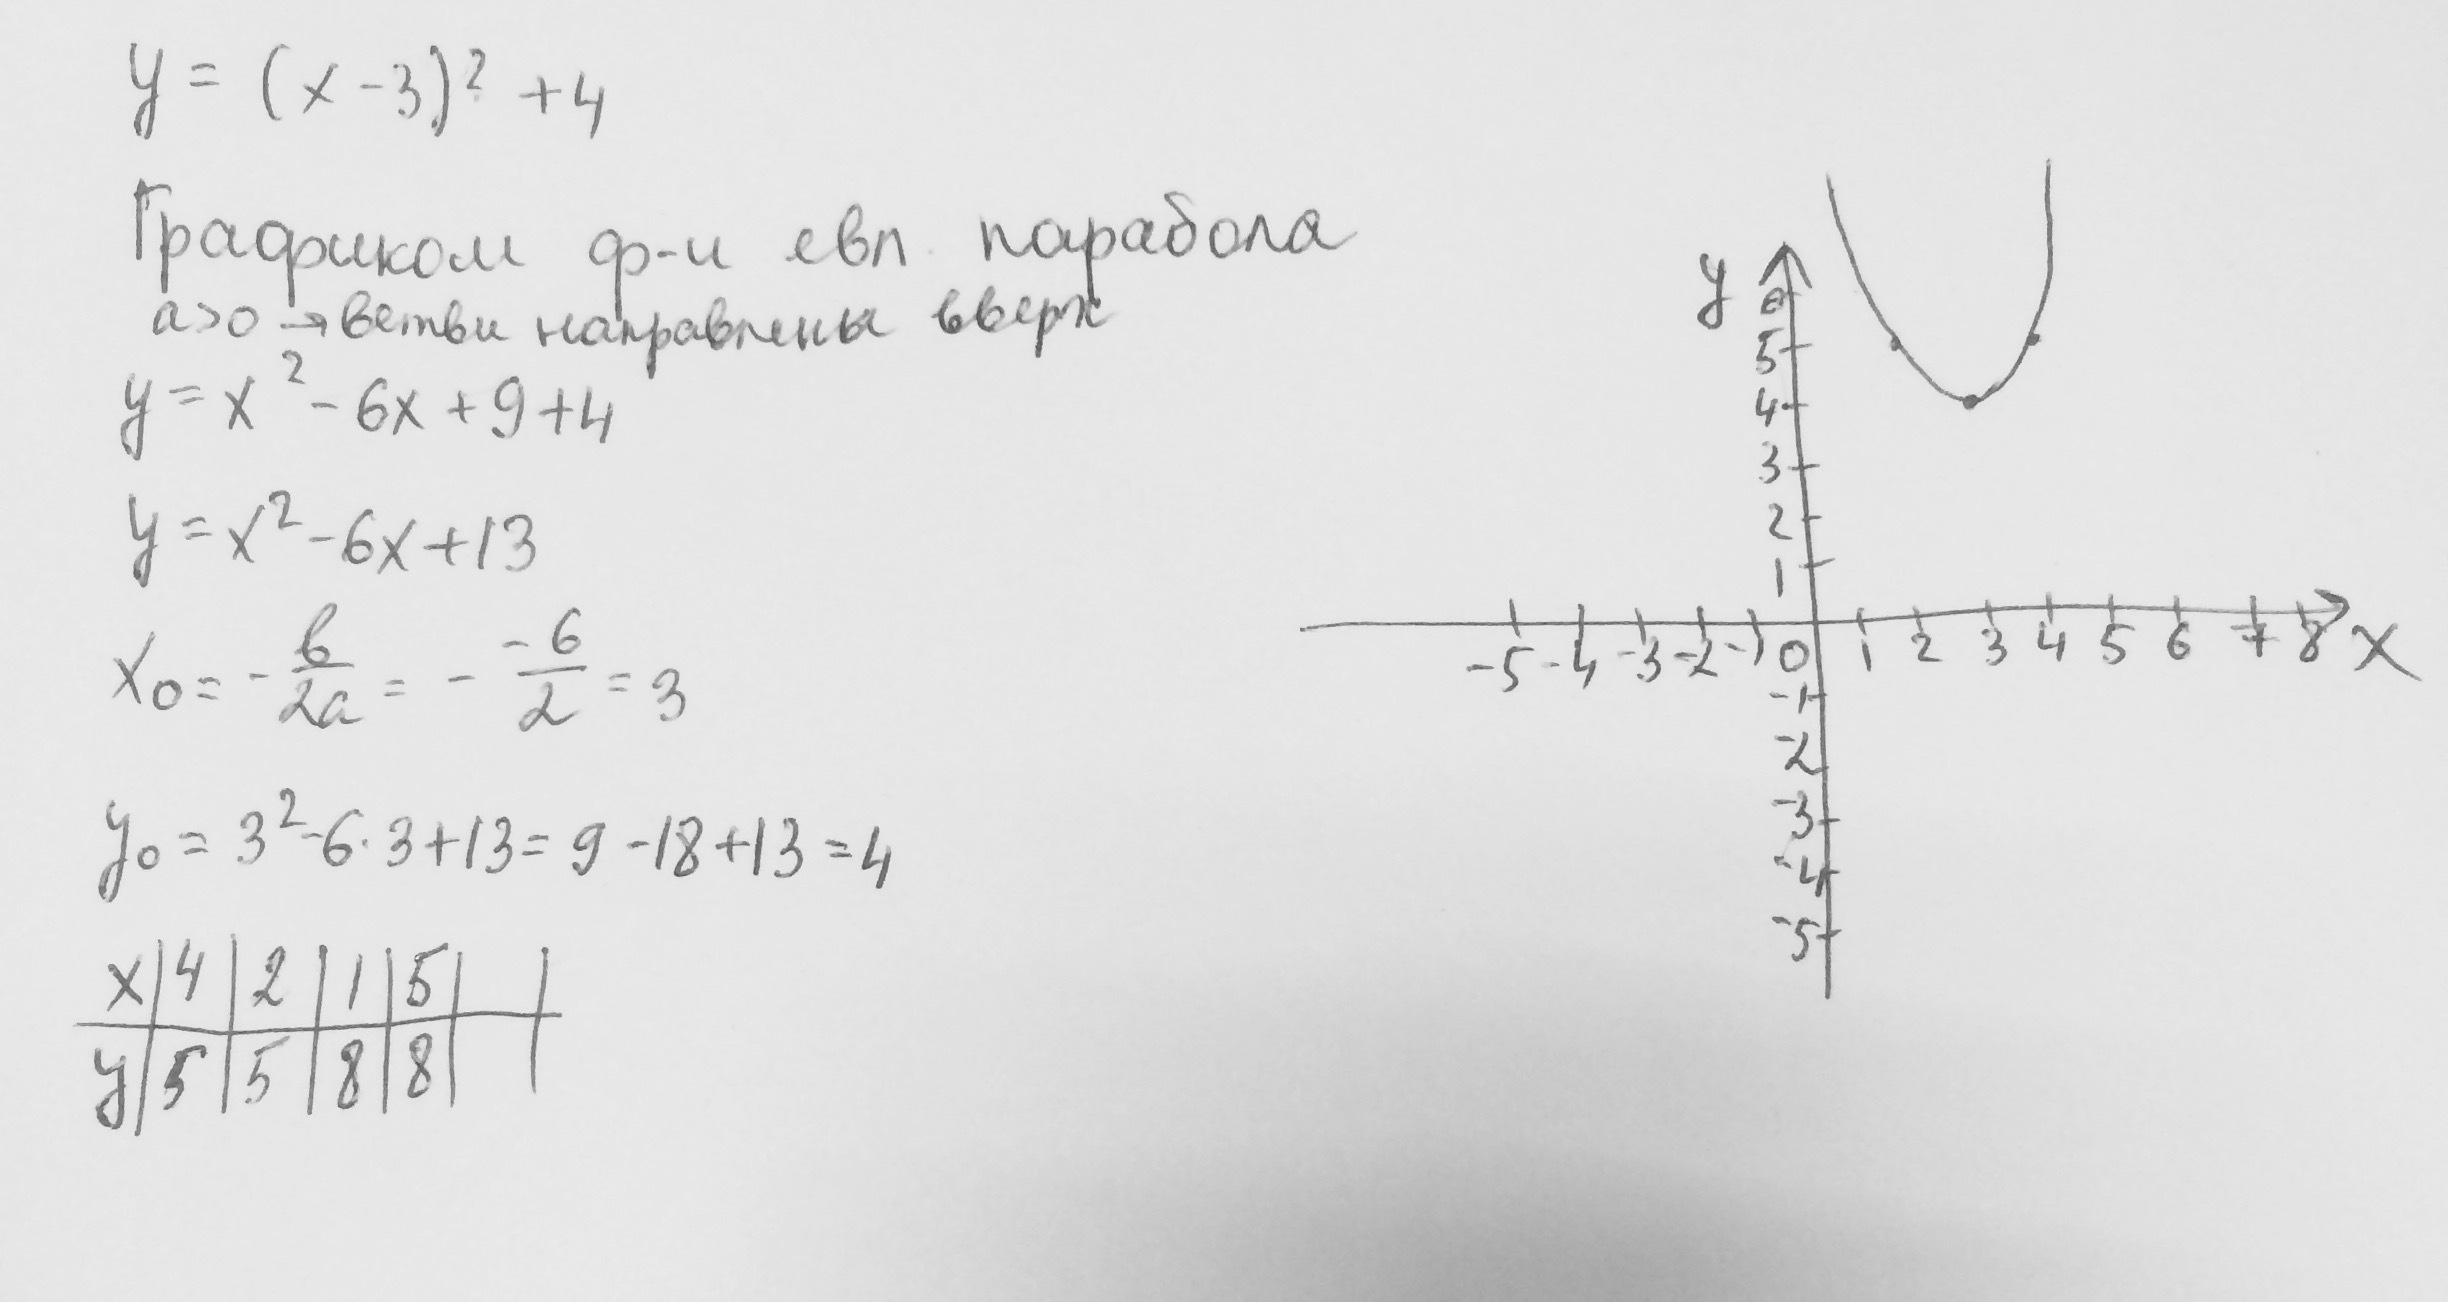 y = (x - 3)² + 4
Графиком ф-и явл. парабола
a>0 → ветви направлены вверх
y = x² - 6x + 9 + 4
y = x² - 6x + 13
x₀ = - в/2a = - -6/2 = 3
y₀ = 3² - 6 · 3 + 13 = 9 - 18 + 13 = 4
x | 4 | 2 | 1 | 5
y | 5 | 5 | 8 | 8
y
6
5
4
3
2
1
-5 -4 -3 -2 -1 0 1 2 3 4 5 6 7 8 x
-1
-2
-3
-4
-5